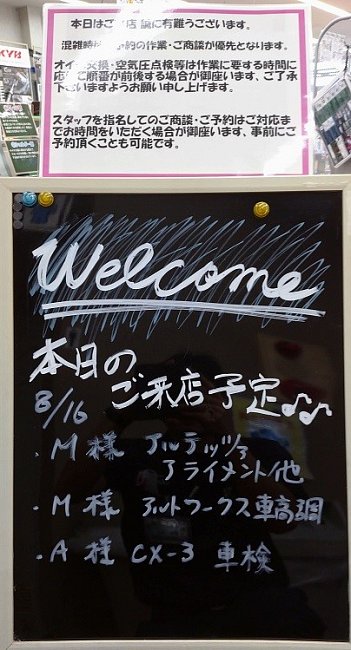 本日はご来店 誠に有難うございます。
混雑時はご予約の作業・ご商談が優先となります。
オイル交換・空気圧点検等は作業に要する時間に
応じご順番が前後する場合が御座います、ご了承
下さいますようお願い申し上げます。
スタッフを指名してのご商談・ご予約はご対応ま
でお時間をいただく場合が御座います、事前にご
予約頂くことも可能です。
KYB
Welcome
本日の
ご来店予定♪♪
8/16
・M様 アルテッツァ
アライメント/他
・M様 アルトワークス車高調
・A様 CX-3 車検